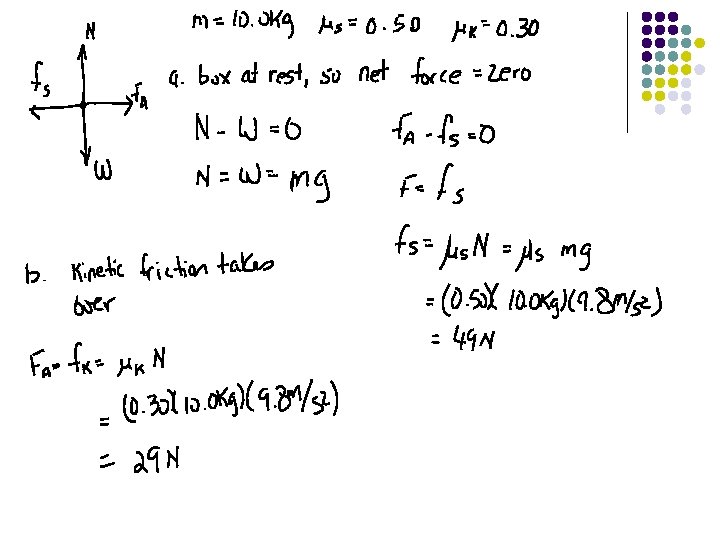 N
fs
fA
W
m = 10.0kg μs = 0.50 μk = 0.30
a. box at rest, so net force = zero
N - W = 0
N = W = mg
fA - fs = 0
F = fs
fs = μsN = μs mg
= (0.50)(10.0kg)(9.8m/s2)
= 49N
b. Kinetic friction takes
over
FA = fk = μk N
= (0.30)(10.0kg)(9.8m/s2)
= 29N